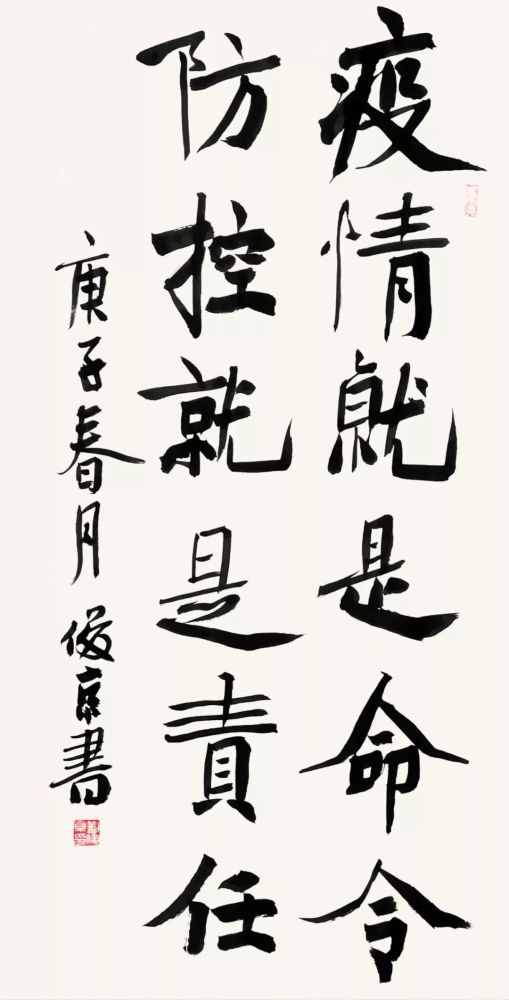 疫情就是命令
防控就是責任
庚子春月 俊京書